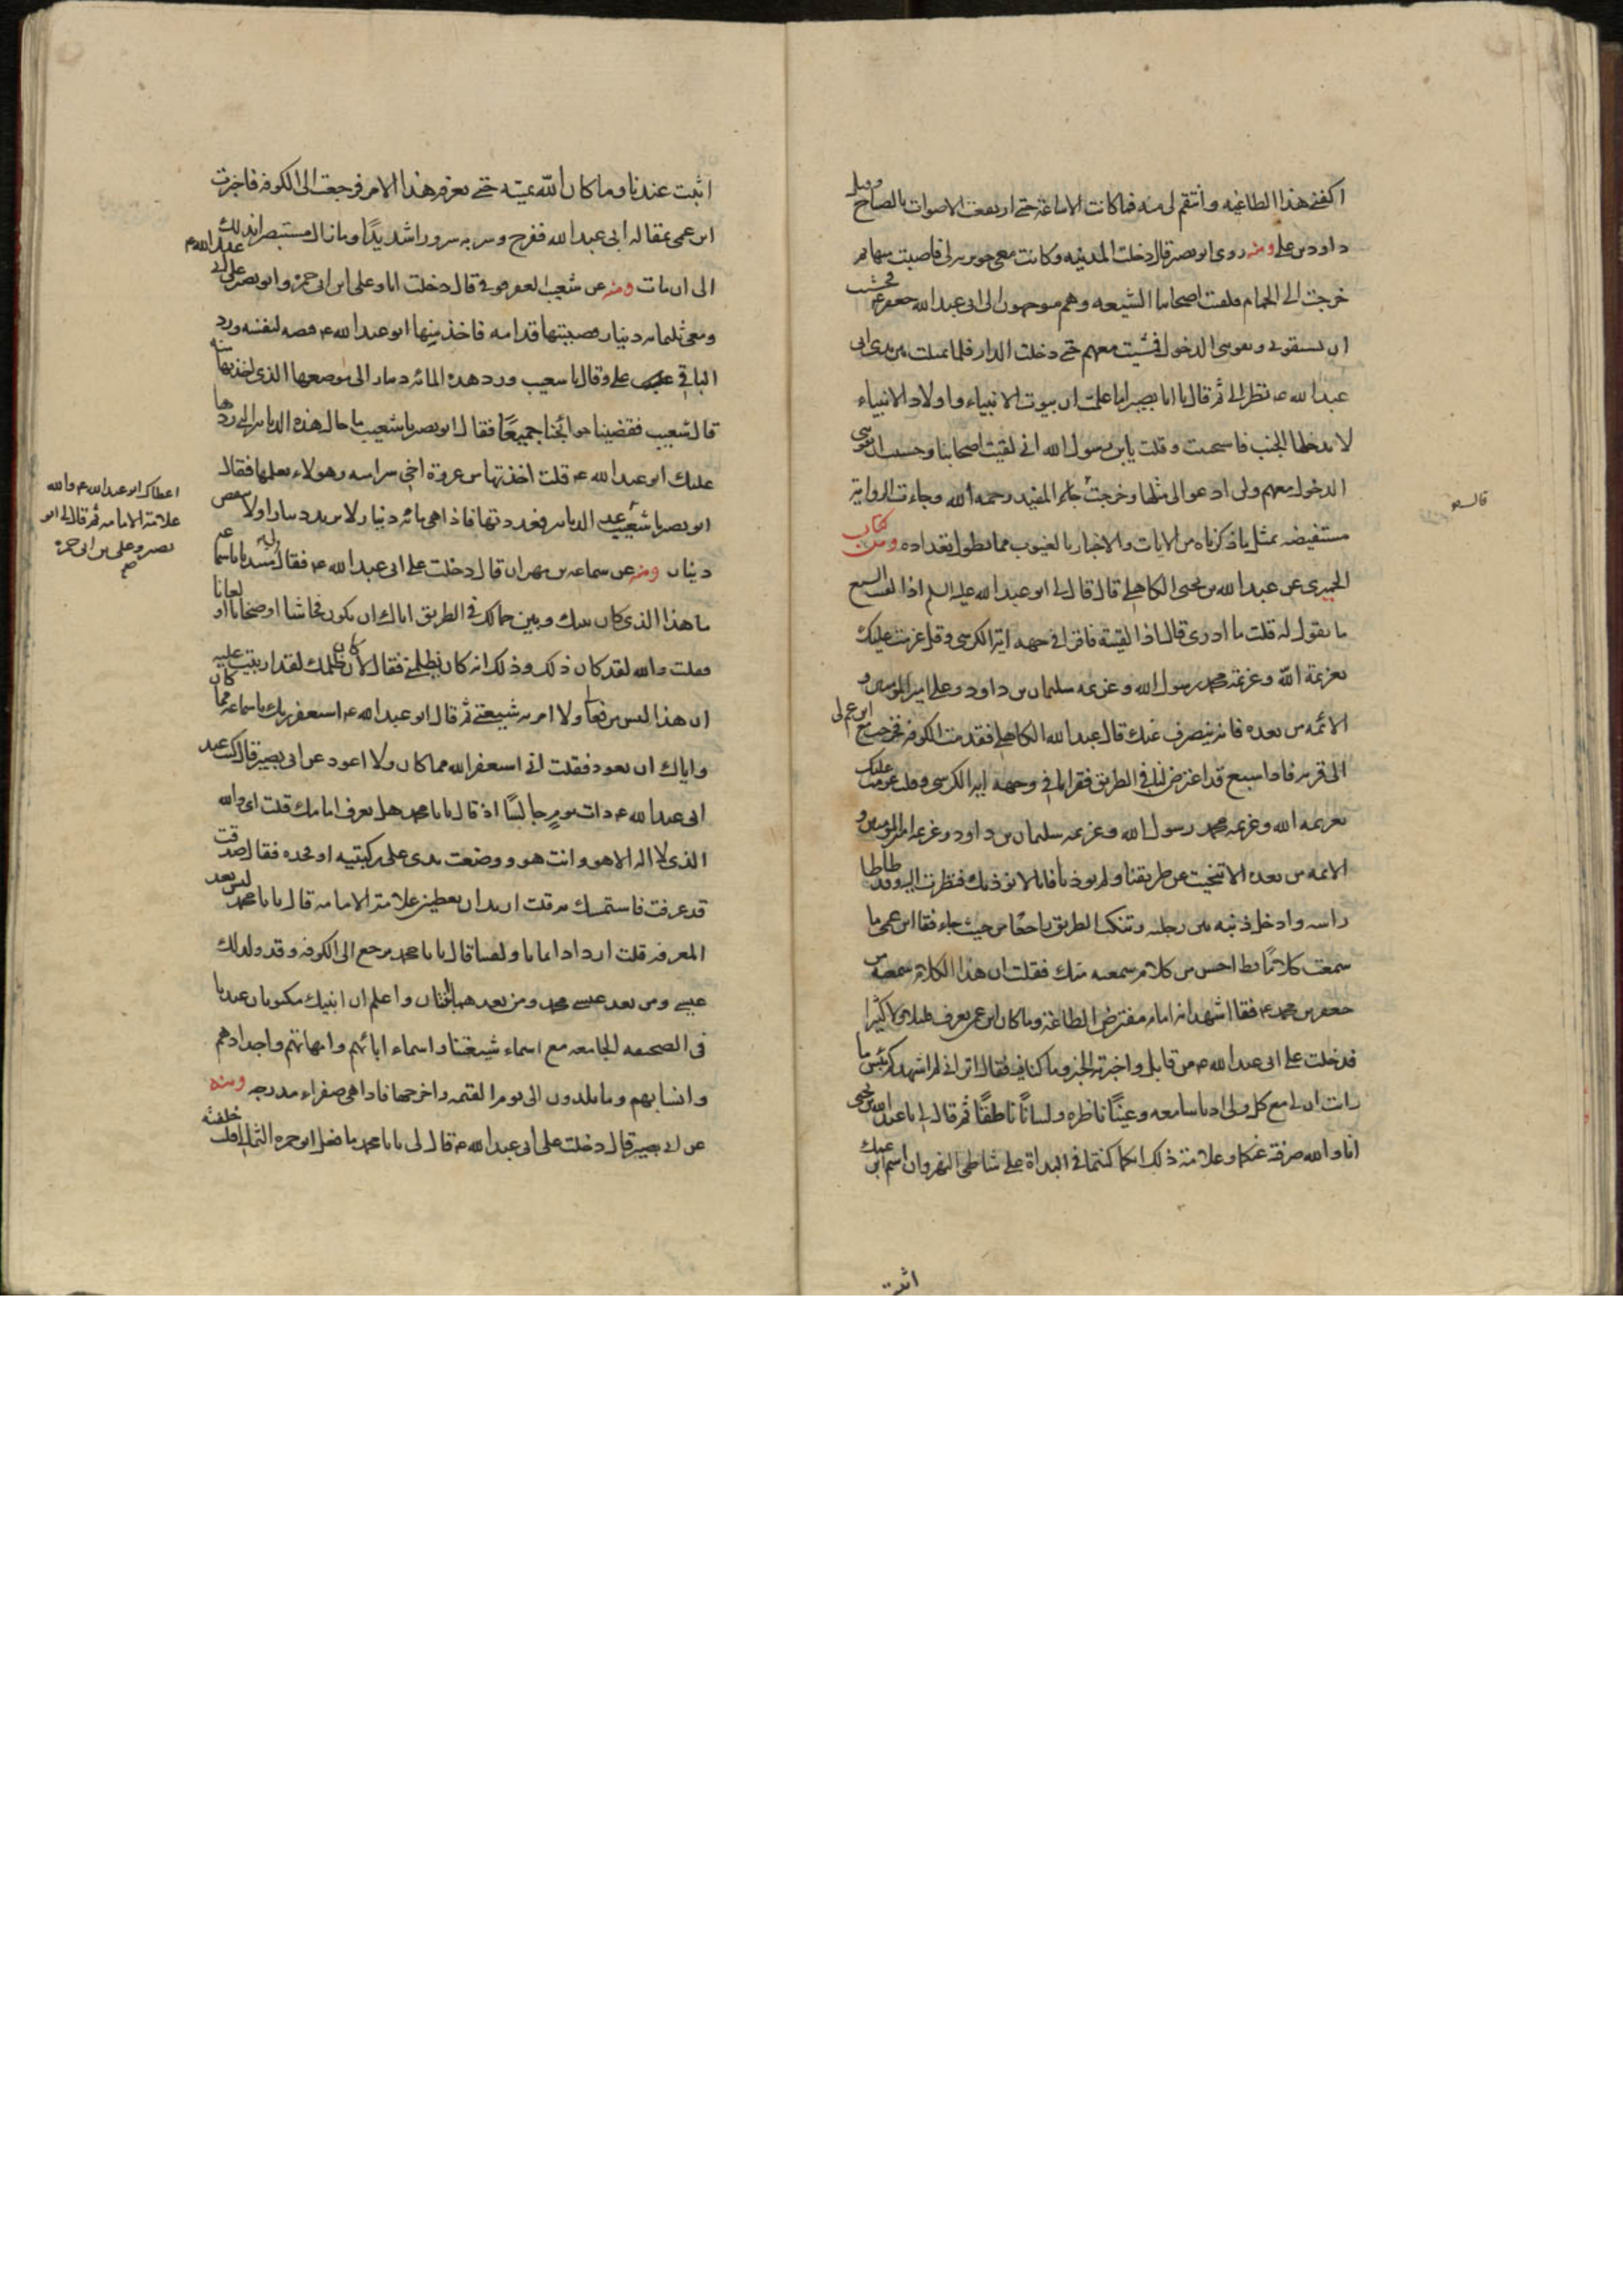 اكفني هذا الطاغيه وانتقم لى منه فما كانت الا ساعة حتى ارتفعت الاصوات بالصياح وقيل
داود بن على ومنه روى ابو بصير قال دخلت المدينه وكانت معى جويريه لى فاصبت منها ثم
خرجت الى الحمام فلقيت اصحابنا الشيعه وهم متوجهون الى ابى عبد الله جعفر ع فخشيت
ان يسبقونى ويفوتنى الدخول فمشيت معهم حتى دخلت الدار فلما مثلت بين يدى ابى
عبد الله ع نظر الى ثم قال يا ابا بصير اما علمت ان بيوت الانبياء واولاد الانبياء
لا يدخلها الجنب فاستحييت وقلت يابن رسول الله انى لقيت اصحابنا وخشيت ان يفوتنى
الدخول معهم ولن ادعو الى مثلها وخرجت المفيد رحمه الله وجاءت الرواية
مستفيضه بمثل ما ذكرناه من الايات والاخبار بالغيوب مما يطول تعداده ومن كتاب
الحميرى عن عبد الله بن يحيى الكاهلى قال قال لى ابو عبد الله عليه السلم اذا لقيت السبع
ما تقول له قلت ما ادرى قال اذا لقيته فاقرا فى وجهه اية الكرسى وقل عزمت عليك
بعزيمة الله وعزيمة محمد رسول الله وعزيمه سليمان بن داود وعلى امير المومنين و
الائمه من بعده فانه ينصرف عنك قال عبد الله الكاهلى فقدمت الكوفه فخرجت مع ابن عم لى
الى قريه فاذا سبع قد اعترض لنا فى الطريق فقرات فى وجهه اية الكرسى وقلت عزمت عليك
بعزيمه الله وعزيمه محمد رسول الله وعزيمه سليمان بن داود وعزيمه امير المومنين و
الائمه من بعده الا تنحيت عن طريقنا ولم توذنا فانا لا نوذيك فنظرت اليه وقد طاطا
راسه وادخل ذنبه بين رجليه وتنكب الطريق راجعا من حيث جاء فقال ابن عمى ما
سمعت كلاما قط احسن من كلام سمعته منك فقلت ان هذا الكلام سمعته من
جعفر بن محمد ع فقال اشهد انه امام مفترض الطاعة وما كان ابن عمى يعرف قليلا ولا كثيرا
فدخلت على ابى عبد الله ع من قابل واخبرته الخبر وما كنا فيه فقال اترى انى لم اشهدكم بئس ما
رايت ان لى مع كل ولى اذنا سامعه وعينا ناظره ولسانا ناطقا ثم قال لى يا عبد الله بن يحيى
انا والله صرفته عنكما وعلامة ذلك انكما كنتما فى البداة على شاطى النهر وان اسم ابن عمك
اثبت
قال
اثبت عندنا وما كان الله يميته حتى يعرفه هذا الامر فرجعت الى الكوفه فاخبرت
ابن عمى بمقاله ابى عبد الله ففرح وسر به سرورا شديدا وما زال مستبصرا بذلك
الى ان مات ومنه عن شعيب العقرقوفى قال دخلت انا وعلى ابن ابى حمزه وابو بصير على ابى عبد الله ع
ومعى ثلثمايه دينار فصببتها قدامه فاخذ منها ابو عبد الله ع قبضه لنفسه ورد
الباقى على وقال يا شعيب رد هذه المائه دينار الى موضعها الذى اخذتها منه
قال شعيب فقضينا حوائجنا جميعا فقال ابو بصير يا شعيب ما حال هذه الدنانير التى ردها
عليك ابو عبد الله ع قلت اخذتها من عروة اخى سرا منه وهو لا يعلمها فقال
ابو بصير يا شعيب عد الدنانير فعددتها فاذا هى مائه دينار لا يزيد دينارا ولا ينقص
دينارا ومنه عن سماعه بن مهران قال دخلت على ابى عبد الله ع فقال مبتديا يا سماعه
ما هذا الذى كان بينك وبين جمالك فى الطريق اياك ان تكون فحاشا او صخابا او لعانا
فقلت والله لقد كان ذلك وذلك انه كان يظلمنى فقال لان كان ظلمك لقد اربيت عليه
ان هذا ليس من فعالى ولا امر به شيعتى ثم قال ابو عبد الله ع استغفر ربك يا سماعه مما كان
واياك ان تعود فقلت انى استغفر الله مما كان ولا اعود عن ابى بصير قال كنت عند
ابى عبد الله ع ذات يوم جالسا اذ قال يا با محمد هل تعرف امامك قلت اى والله
الذى لا اله الا هو وانت هو ووضعت يدى على ركبتيه او فخذه فقال صدقت
قد عرفت فاستمسك به قلت اريد ان تعطينى علامة الامامه قال يا با محمد ليس بعد
المعرفه علامه قلت ازداد ايمانا ويقينا قال يا با محمد ترجع الى الكوفه وقد ولد لك
عيسى ومن بعد عيسى محمد ومن بعدهما ابنتان واعلم ان ابنيك مكتوبان عندنا
فى الصحيفه الجامعه مع اسماء شيعتنا واسماء ابائهم وامهاتهم واجدادهم
وانسابهم وما يلدون الى يوم القيمه واخرجها فاذا هى صفراء مدرجه ومنه
عن ابى بصير قال دخلت على ابى عبد الله ع قال لى يا با محمد ما فعل ابو حمزه الثمالى قلت خلفته
اعطاك ابو عبد الله ع والله
علامة الامامه ثم قال لى ابو
بصير وعلى بن ابى حمزه
صح